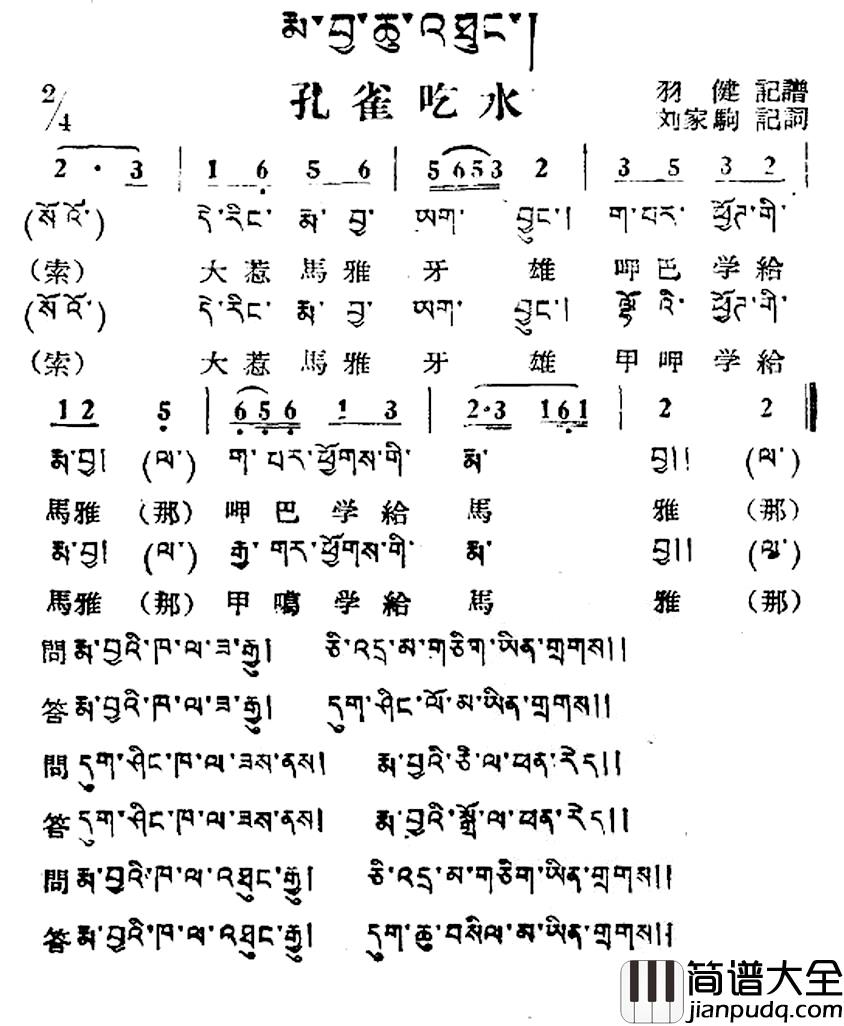 རྨ་བྱ་ཆུ་འཐུང་།
2/4
孔雀吃水
羽健記譜
刘家駒記詞
2 · 3 | 1 6 5 6 | 5 6 5 3 2 | 3 5 3 2 |
(སོ་འོ་) དེ་རིང་ རྨ་ བྱ་ ཡག་ བྱུང་། ག་པར་ ཕྱོཊ་གི་
(索) 大惹馬雅牙雄 呷巴学給
(སོ་འོ་) དེ་རིང་ རྨ་ བྱ་ ཡག་ བྱུང་། ལྷོ་འི་ ཕྱོཊ་གི་
(索) 大惹馬雅牙雄 甲呷学給
1 2 5 | 6 5 6 1 3 | 2·3 1 6 1 | 2 2
རྨ་བྱ། (ལ་) ག་པར་ཕྱོགས་གི་ རྨ་ བྱ།། (ལ་)
馬雅(那) 呷巴学給馬雅(那)
རྨ་བྱ། (ལ་) རྒྱ་གར་ཕྱོགས་གི་ རྨ་ བྱ།། (ལ་)
馬雅(那) 甲噶学給馬雅(那)
問 རྨ་བྱའི་ཁ་ལ་ཟ་རྒྱུ། ཅི་འདྲ་མ་གཅིག་ཡིན་གྲགས།།
答 རྨ་བྱའི་ཁ་ལ་ཟ་རྒྱུ། དུག་ཤིང་ལོ་མ་ཡིན་གྲགས།།
問 དུག་ཤིང་ཁ་ལ་ཟས་ནས། རྨ་བྱའི་ཅི་ལ་ཕན་རེད།།
答 དུག་ཤིང་ཁ་ལ་ཟས་ནས། རྨ་བྱའི་སྒྲོ་ལ་ཕན་རེད།།
問 རྨ་བྱའི་ཁ་ལ་འཐུང་རྒྱུ། ཅི་འདྲ་མ་གཅིག་ཡིན་གྲགས།།
答 རྨ་བྱའི་ཁ་ལ་འཐུང་རྒྱུ། དུག་ཆུ་བསིལ་མ་ཡིན་གྲགས།།
简谱大全
jianpudq.com